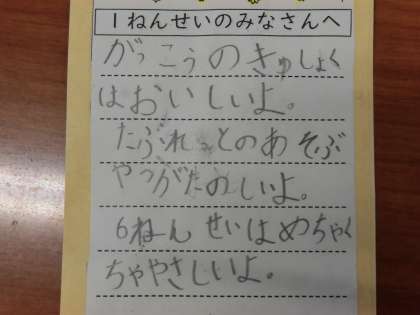 1ねんせいのみなさんへ
がっこうのきゅしょく
はおいしいよ。
たぶれっとのあそぶ
やつがたのしいよ。
6ねんせいはめちゃく
ちゃやさしいよ。